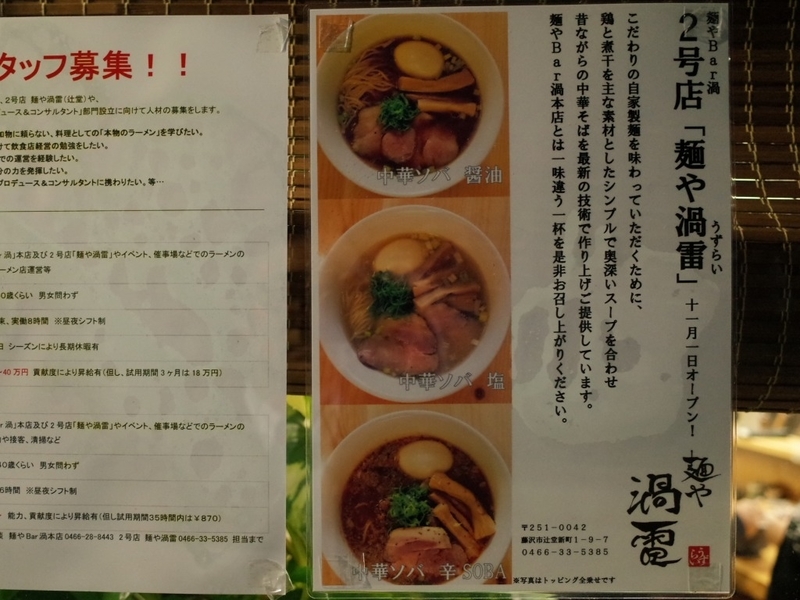 タッフ募集！！
、2号店 麺や渦雷(辻堂)や、
デュース＆コンサルタント」部門設立に向けて人材の募集をします。
加物に頼らない、料理としての「本物のラーメン」を学びたい。
けて飲食店経営の勉強をしたい。
での運営を経験したい。
分の力を発揮したい。
プロデュース＆コンサルタントに携わりたい。等…
渦」本店及び2号店「麺や渦雷」やイベント、催事場などでのラーメンの
ーメン店運営等
0歳くらい 男女問わず
実働8時間 ※昼夜シフト制
シーズンにより長期休暇有
~40万円 貢献度により昇給有(但し、試用期間3ヶ月は18万円)
ar渦」本店及び2号店「麺や渦雷」やイベント、催事場などでのラーメンの
や接客、清掃など
40歳くらい 男女問わず
6時間 ※昼夜シフト制
能力、貢献度により昇給有(但し試用期間35時間内は￥870)
麺やBar渦本店0466-28-8443 2号店 麺や渦雷0466-33-5385 担当まで
麺やBar渦
2号店「麺や渦雷」十一月一日オープン！
うずらい
こだわりの自家製麺を味わっていただくために、
鶏と煮干を主な素材としたシンプルで奥深いスープを合わせ
昔ながらの中華そばを最新の技術で作り上げご提供しています。
麺やBar渦本店とは一味違う一杯を是非お召し上がりください。
中華ソバ 醤油
中華ソバ 塩
中華ソバ 辛SOBA
麺や
渦雷
うずらい
〒251-0042
藤沢市辻堂新町1-9-7
0466-33-5385
※写真はトッピング全乗せです